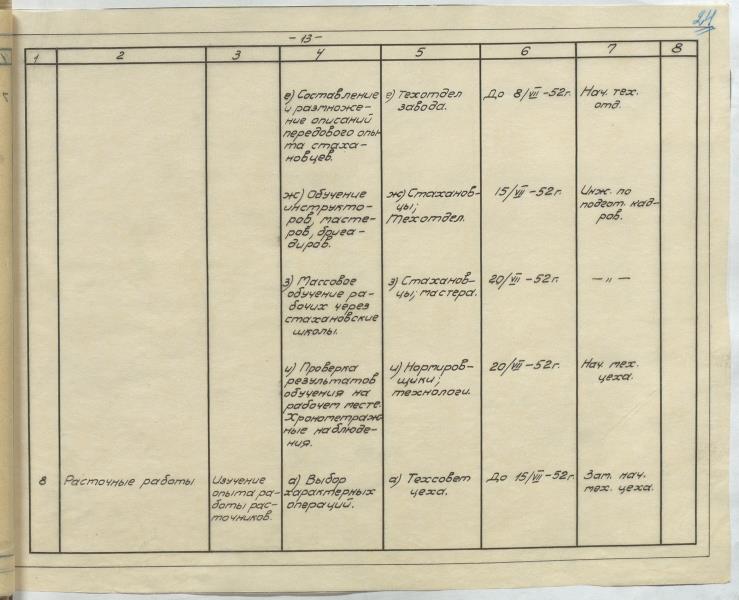 24
- 13 -
1 2 3 4 5 6 7 8
е) Составление
и размноже-
ние описаний
передового опы-
та стаха-
новцев.
е) Техотдел
завода.
До 8/VII-52г.
Нач. тех.
отд.
ж) Обучение
инструкто-
ров, масте-
ров, брига-
диров.
ж) Стаханов-
цы;
Техотдел.
15/VII-52г.
Инж. по
подгот. кад-
ров.
з) Массовое
обучение ра-
бочих через
стахановские
школы.
з) Стаханов-
цы; мастера.
20/VII-52г.
— „ —
и) Проверка
результатов
обучения на
рабочем месте.
Хронометраж-
ные наблюде-
ния.
и) Нормиров-
щики;
технологи.
20/VII-52г.
Нач. мех.
цеха.
8
Расточные работы
Изучение
опыта ра-
боты рас-
точников.
а) Выбор
характерных
операций.
а) Техсовет
цеха.
До 15/VII-52г.
Зам. нач.
мех. цеха.